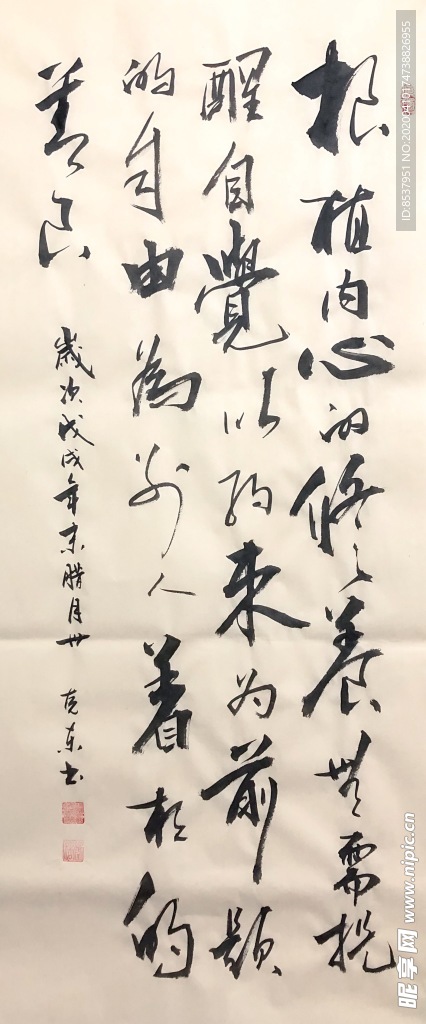 根植内心的修养无需提
醒自覺以约束为前题
的自由為别人着想的
善良
歲次戊戌年末腊月廿 克东书
ID:8537951 NO:20200410174738826955
昵享网 www.nipic.cn